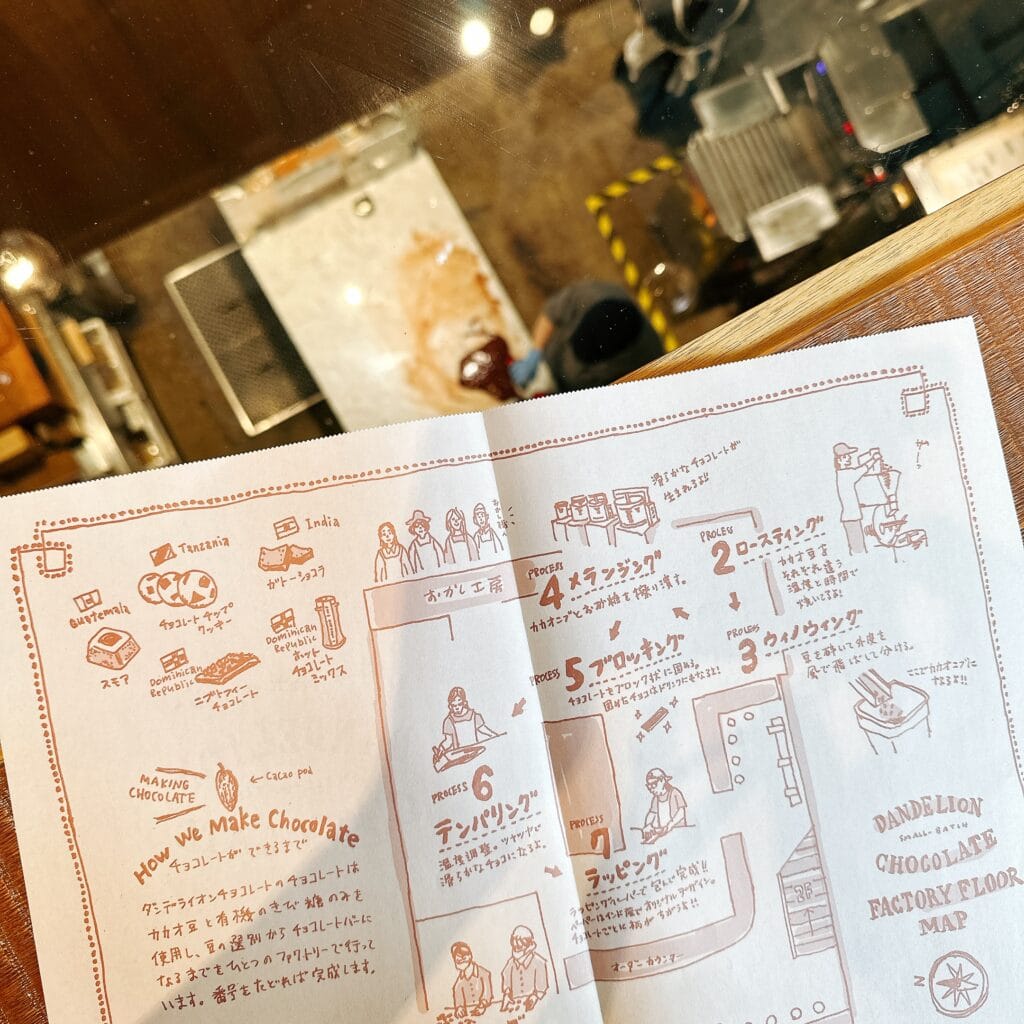 India
ガトーショコラ
Tanzania
チョコレートチップ
クッキー
Guatemala
スモア
Dominican
Republic
ホット
チョコレート
ミックス
Dominican
Republic
ニブトフィン
チョコレート
おかし工房
滑らかなチョコレートが
生まれるよ♪
PROCESS
4 メランジング
カカオニブとお砂糖を擦り潰す。
PROCESS
2 ロースティング
カカオ豆を
それぞれ違う
温度と時間で
PROCESS
5 ブロッキング
チョコレートをブロック状に固める。
固めたチョコはドリンクにもなるよ!
PROCESS
3 ウィノウィング
豆を砕いて外皮を
風で飛ばして分ける。
ここでカカオニブに
なるよ!!
MAKING
CHOCOLATE
← Cacao pod
How We Make Chocolate
チョコレートができるまで
ダンデライオンチョコレートのチョコレートは
カカオ豆と有機のきび糖のみを
使用し、豆の選別からチョコレートバーに
なるまでをひとつのファクトリーで行って
います。番号をたどれば完成します。
PROCESS 6
テンパリング
温度調整。ツヤツヤで
滑らかなチョコになるよ。
PROCESS
7
ラッピング
ラッピングペーパーで包んで完成!!
ペーパーはインド産でオリジナルデザイン。
チョコレートごとに柄がちがうよ!!
オーダーカウンター
DANDELION
SMALL-BATCH
CHOCOLATE
FACTORY FLOOR
MAP
N